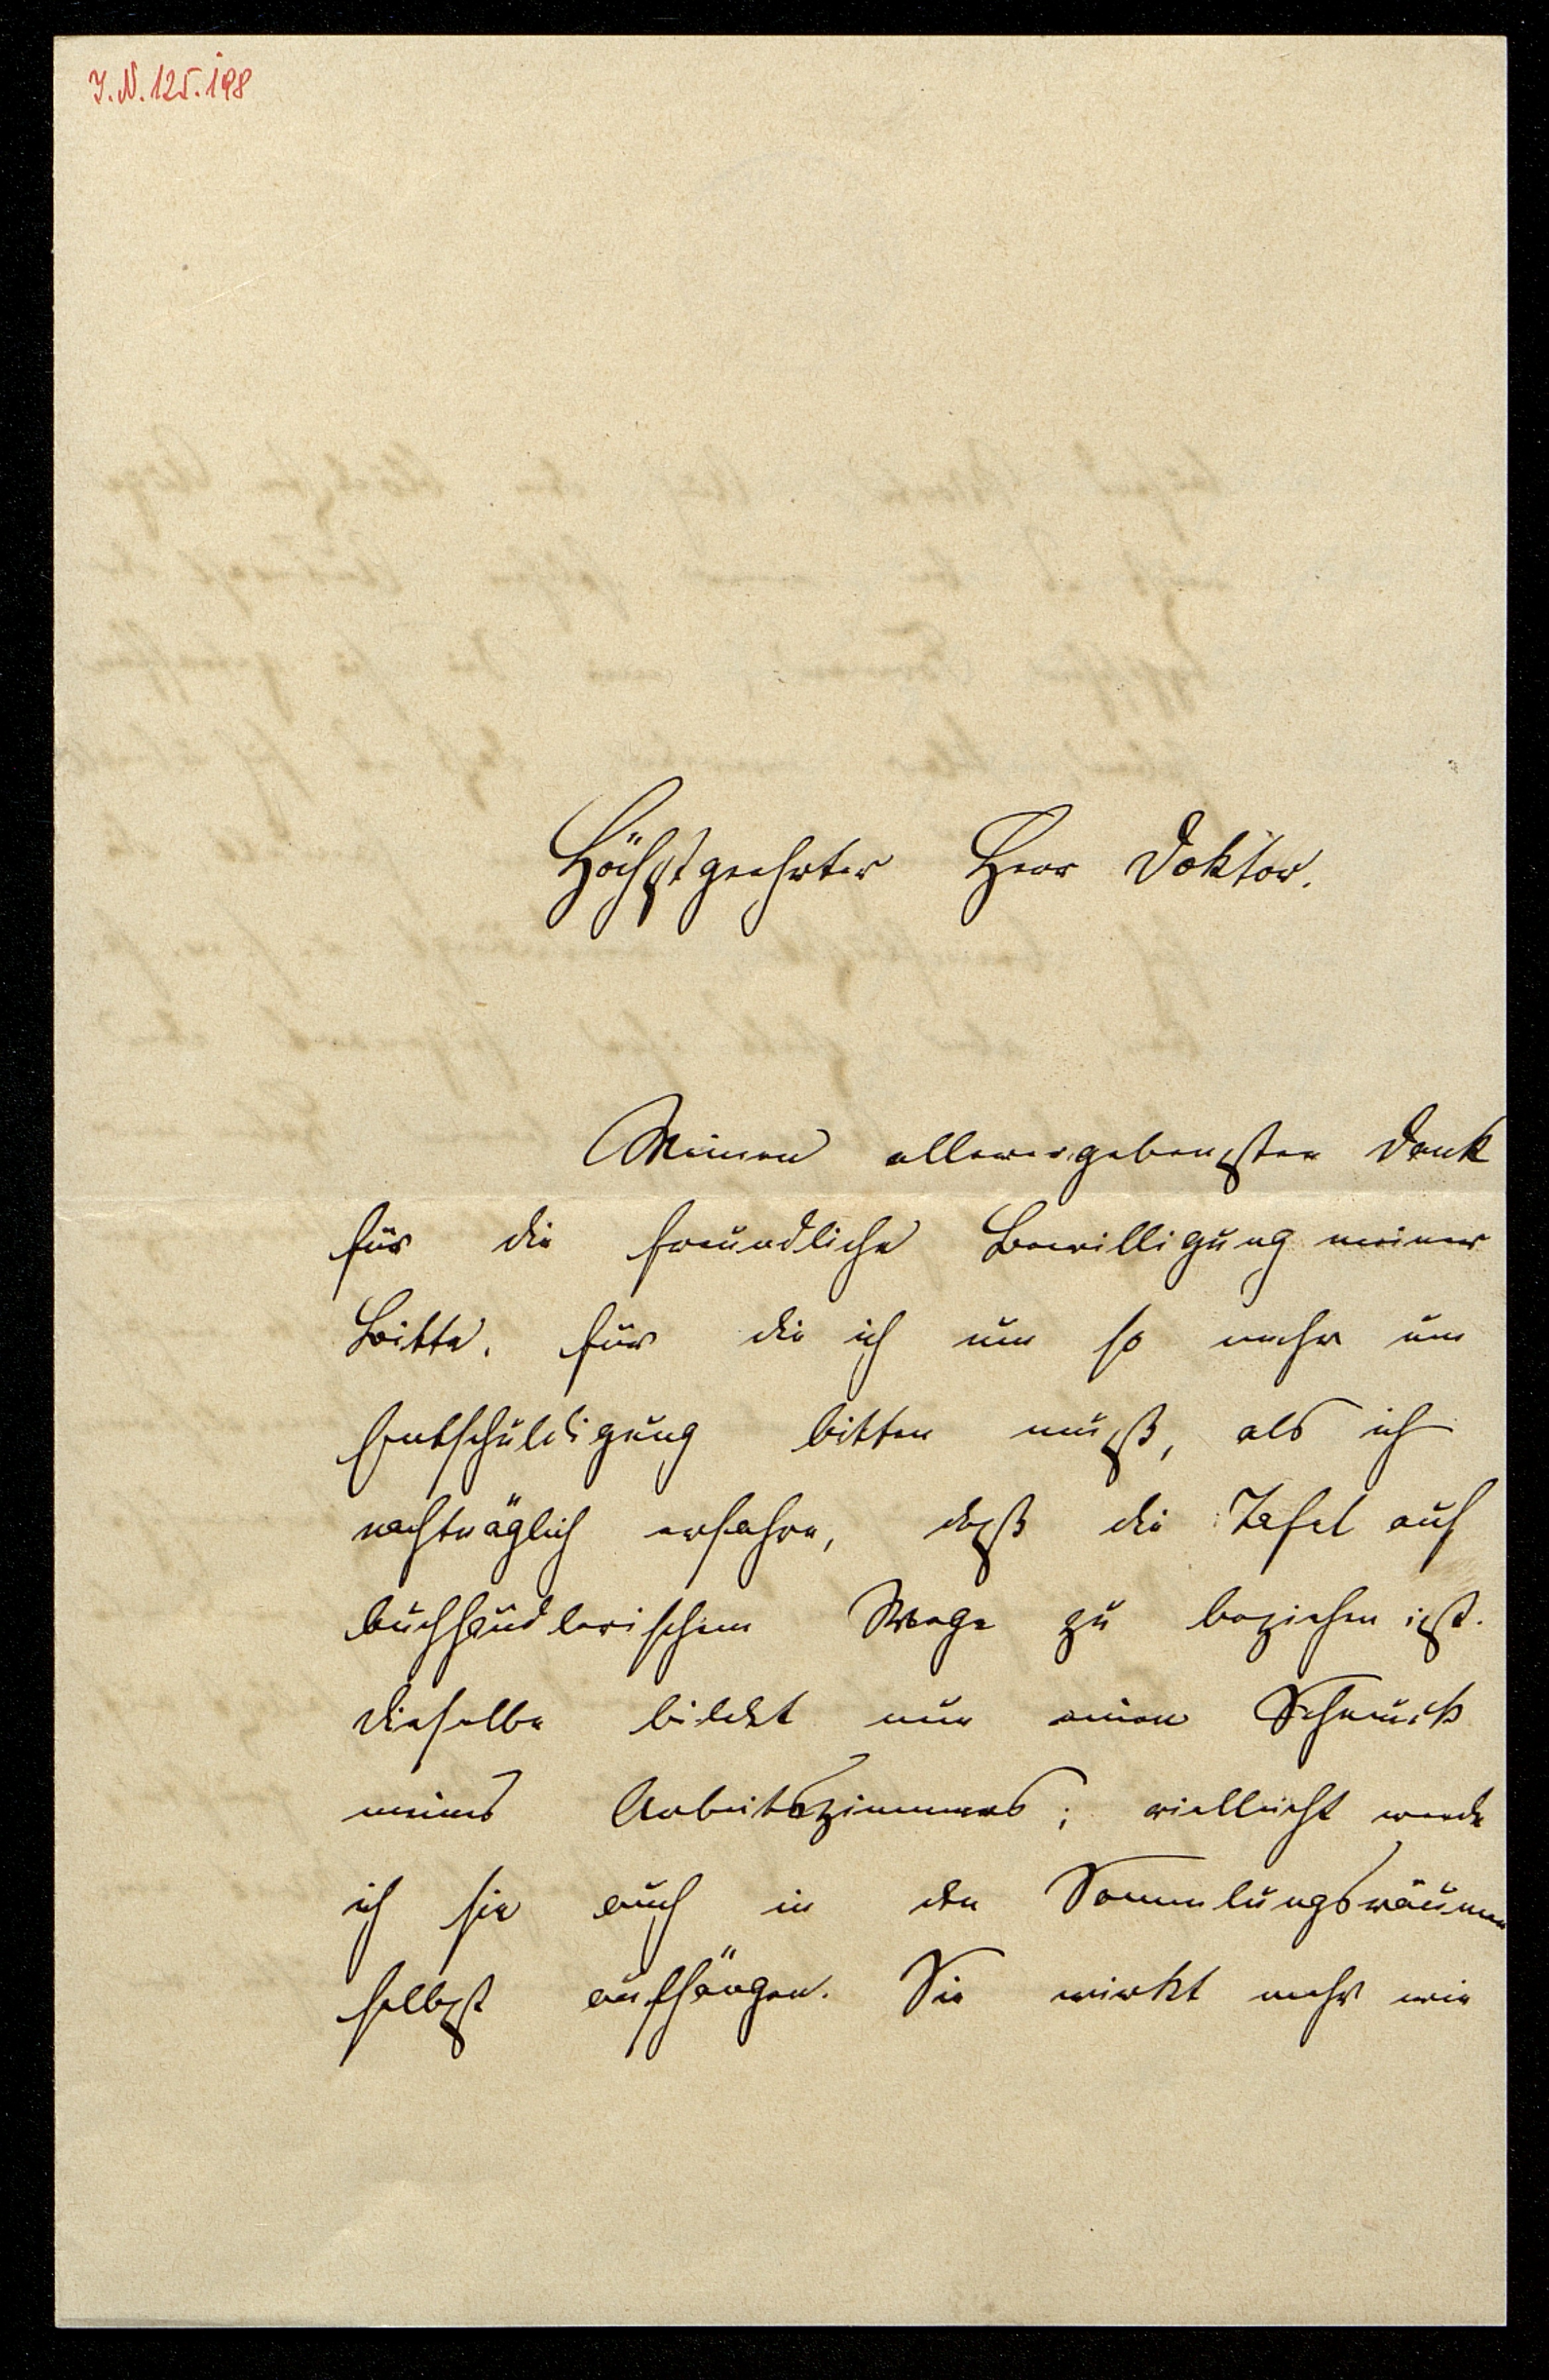 J.N. 125.198
Höchstgeehrter Herr Doktor.
Meinen allerergebensten Dank
für die freundliche Bewilligung meiner
Bitte, für die ich um so mehr um
Entschuldigung bitten muß, als ich
nachträglich erfahre, daß die Tafel auf
buchhändlerischem Wege zu beziehen ist.
Dieselbe bildet nun einen Schmuck
meines Arbeitszimmers; vielleicht werde
ich sie auch in den Sammlungsräumen
selbst aufhängen. Sie wirkt mehr wie